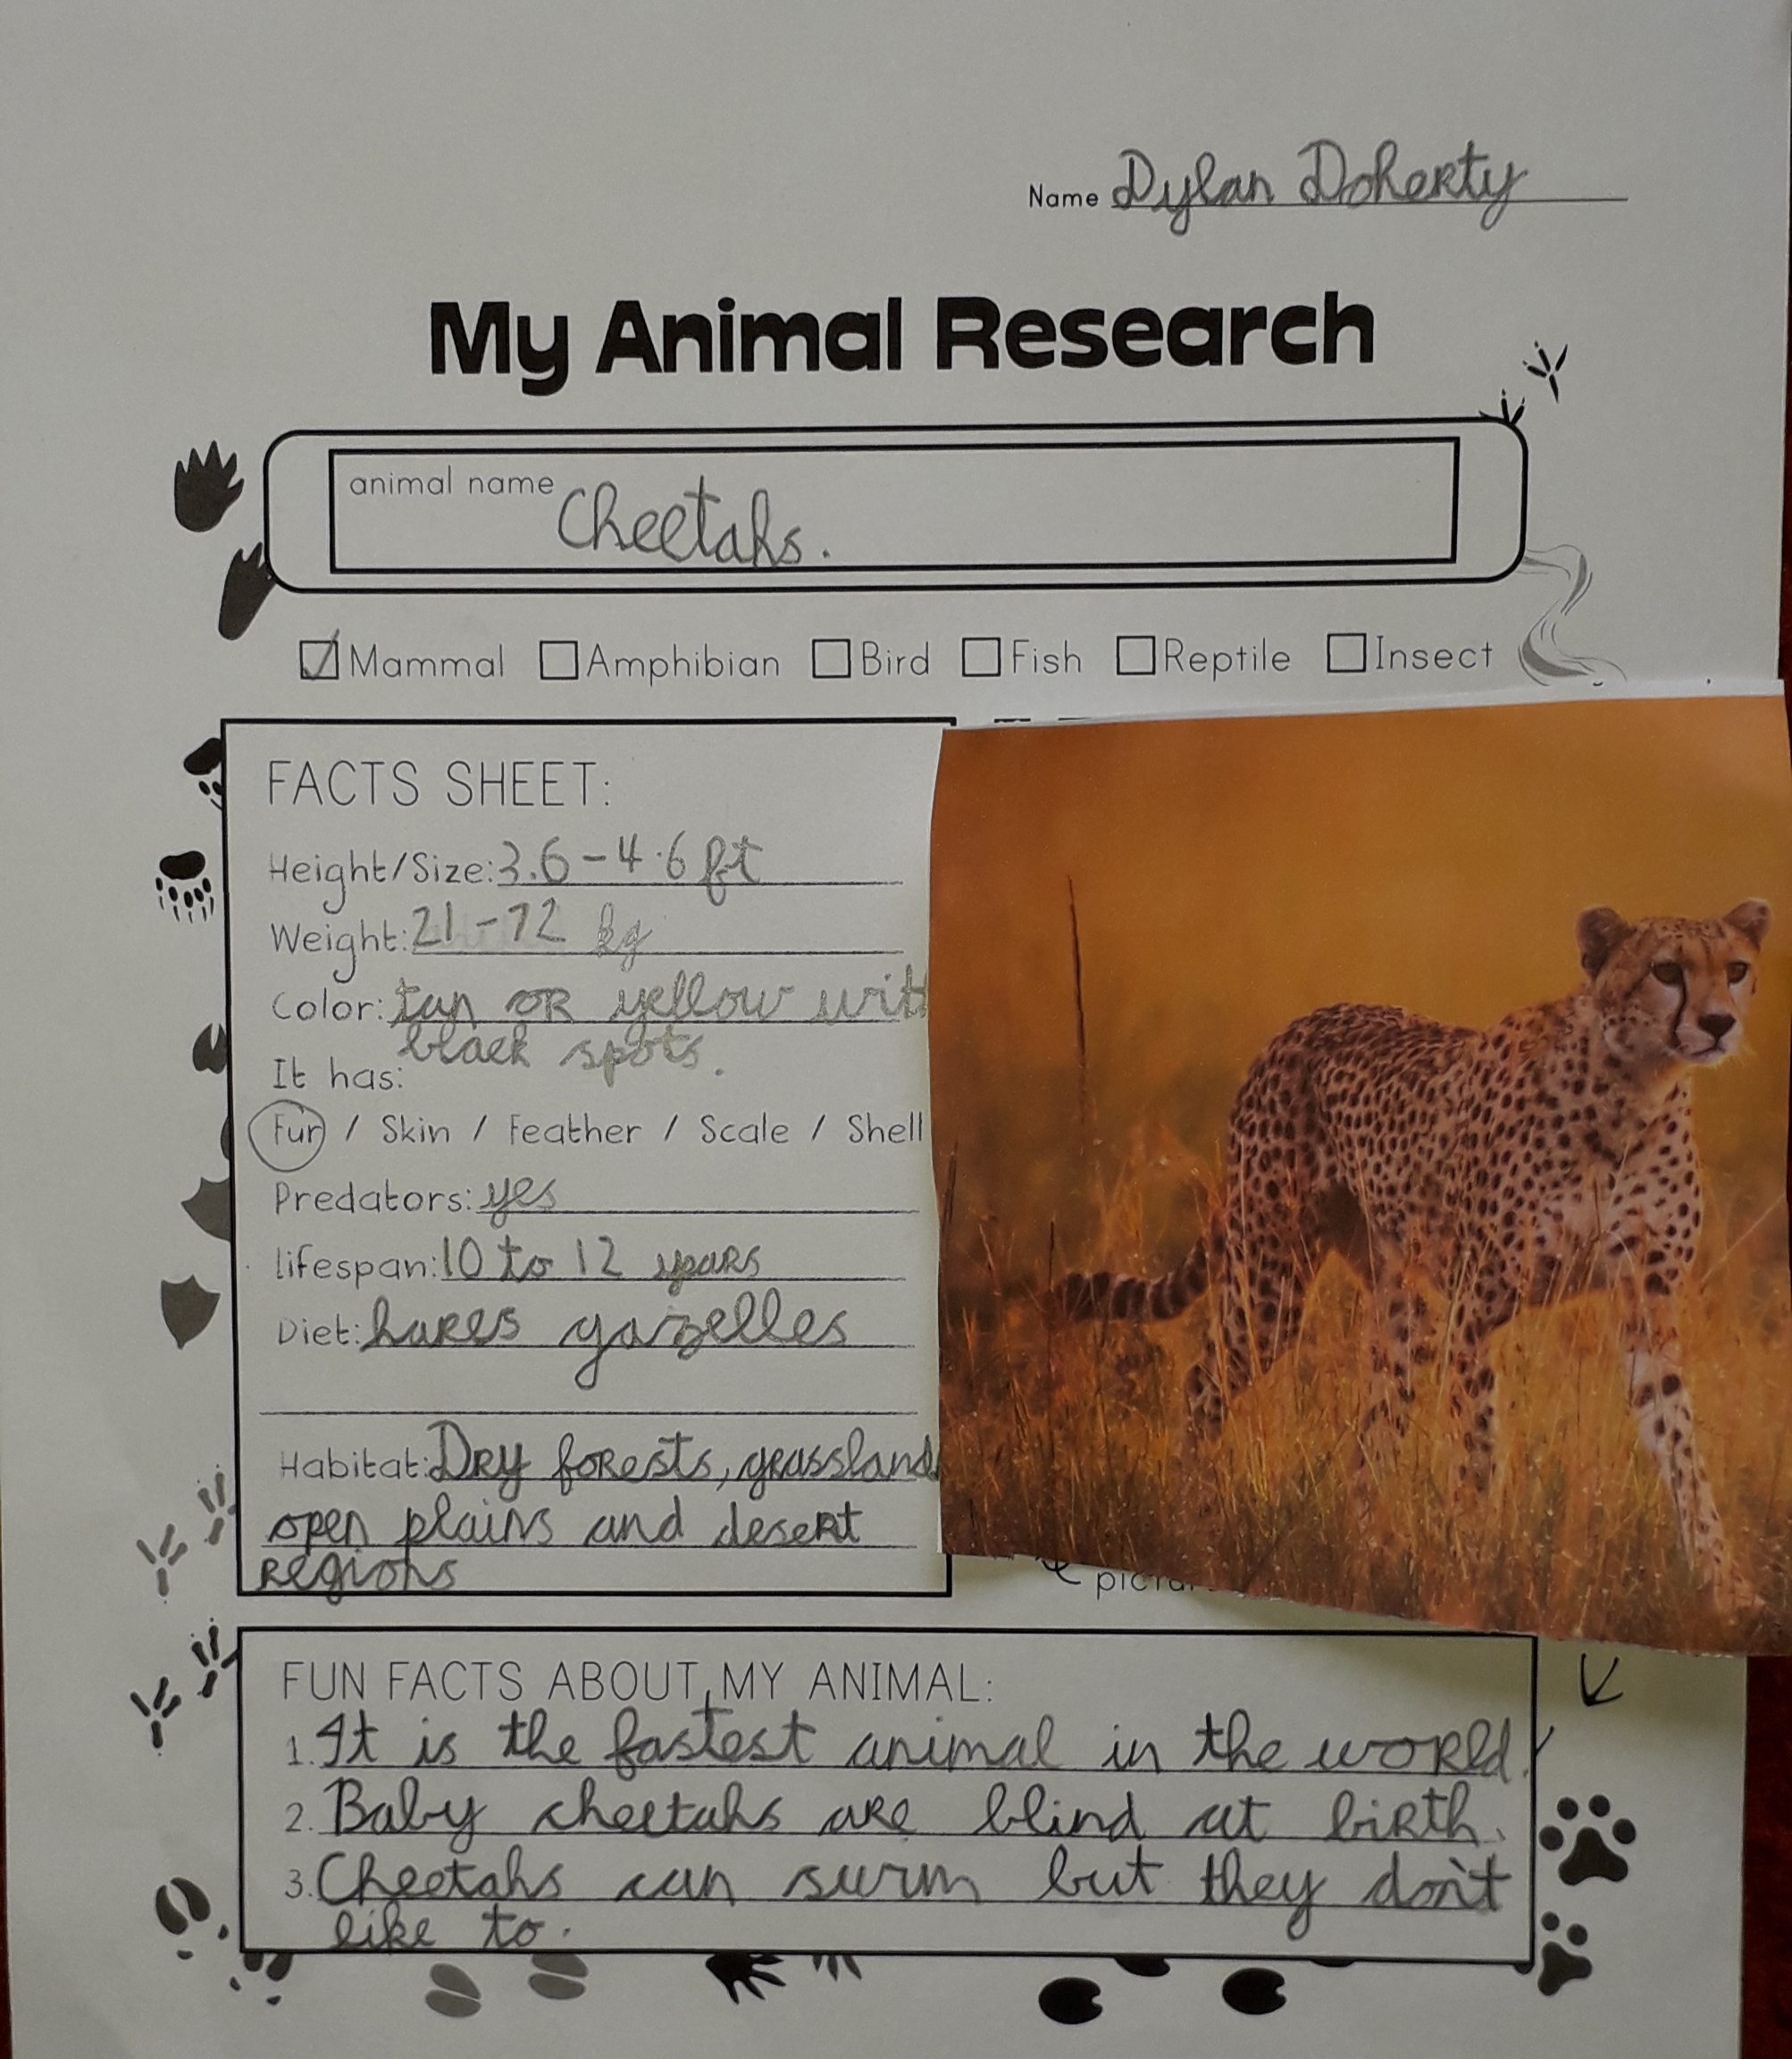 Name Dylan Doherty
My Animal Research
animal name Cheetahs.
Mammal Amphibian Bird Fish Reptile Insect
FACTS SHEET:
Height/Size: 3.6 - 4.6 ft
Weight: 21 - 72 kg
Color: tan or yellow with
black spots.
It has:
Fur / Skin / Feather / Scale / Shell
Predators: yes
lifespan: 10 to 12 years
Diet: hares gazelles
Habitat: Dry forests, grassland
open plains and desert
regions
FUN FACTS ABOUT MY ANIMAL:
1. It is the fastest animal in the world.
2. Baby cheetahs are blind at birth.
3. Cheetahs can swim but they don't
like to.